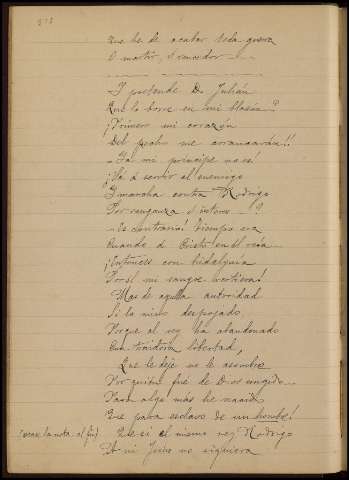 Que he de acatar toda guerra
O mártir, ó vencedor
- Y pretende D. Julián
Que lo borre en mi blasón?
¡Primero mi corazón
Del pecho me arrancarán!!
- Ya mi príncipe no es!
¡Vá á servir al enemigo
Y marcha contra Rodrigo
Por venganza ó interes - !?
- Lo contrario! tiempo era
Cuando á Cristo en él veía
¡Entonces con hidalguía
Por él mi sangre vertiera!
Mas de aquella autoridad
Si la miro despojado
Porque al rey ha abandonado
Con traidora libertad,
Que le deje no le asombre
Por quien fué de Dios ungido...
Para algo más he nacido
Que para esclavo de un hombre!
(vease la nota al fin) Que si el mismo rey Rodrigo
A mi Jesús no siguiera